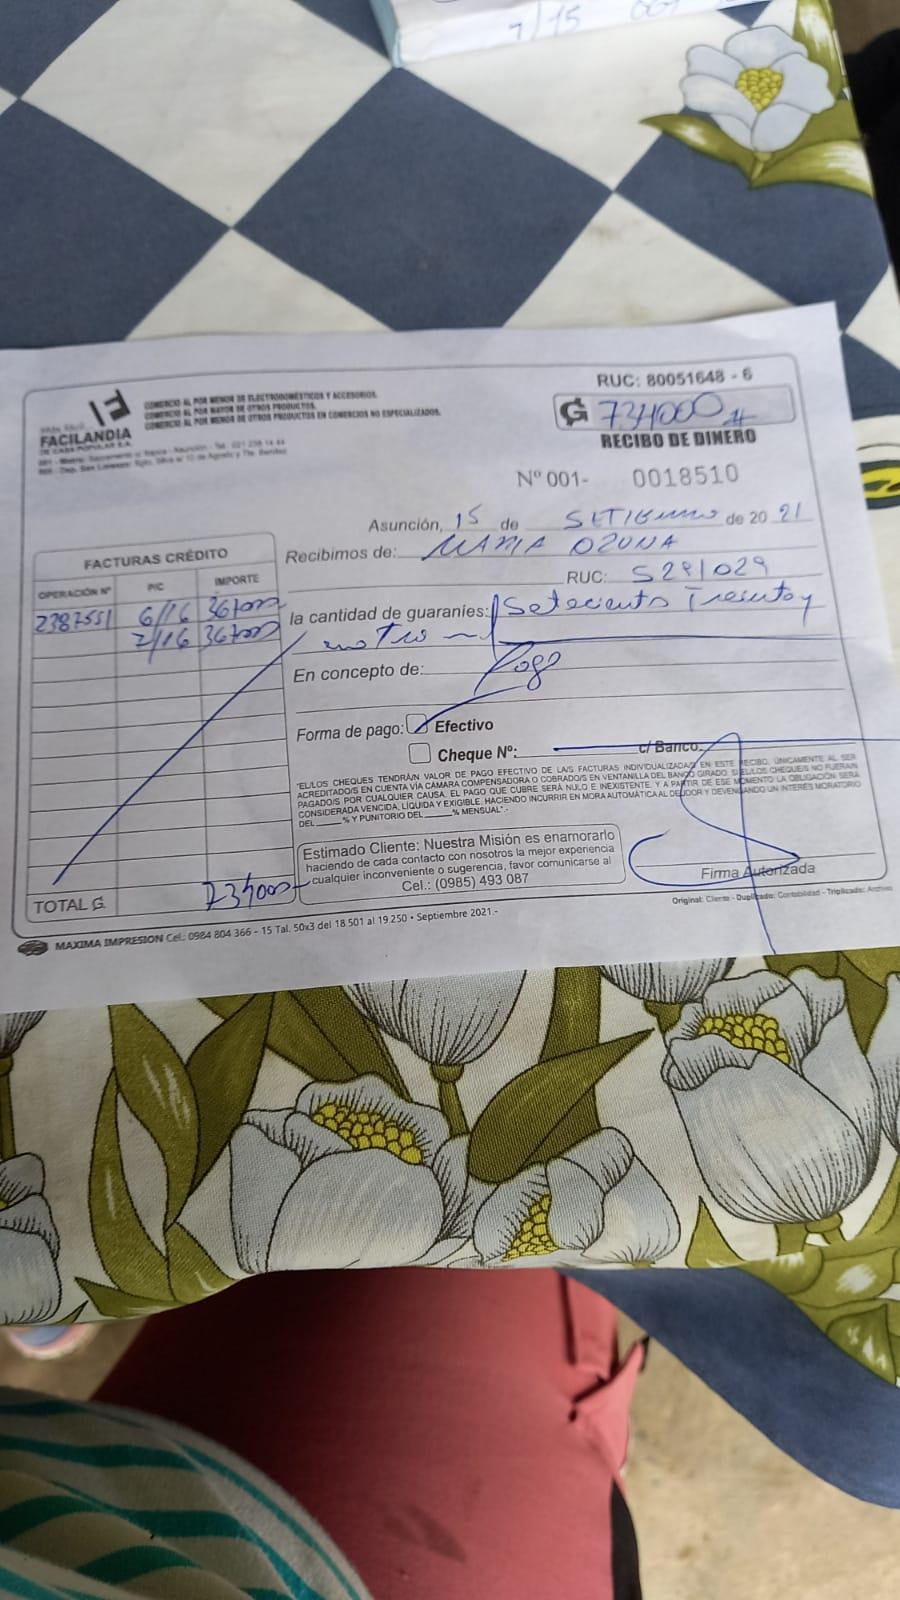 7/15
RUC: 80051648 - 6
FACILANDIA
DE CASA POPULAR S.A.
COMERCIO AL POR MENOR DE ELECTRODOMÉSTICOS Y ACCESORIOS.
COMERCIO AL POR MAYOR DE OTROS PRODUCTOS.
COMERCIO AL POR MENOR DE OTROS PRODUCTOS EN COMERCIOS NO ESPECIALIZADOS.
G 734000
RECIBO DE DINERO
Nº 001- 0018510
Asunción, 15 de SETIEMBRE de 20 21
Recibimos de: MARIA OZUNA
RUC: 5291029
la cantidad de guaraníes: Setecientos Treinta y
cuatro mil
En concepto de: Pago
Forma de pago: Efectivo
Cheque Nº: c/ Banco.
FACTURAS CRÉDITO
OPERACIÓN Nº P/C IMPORTE
2387551 6/16 367000
7/16 367000
TOTAL G. 734000
"EL/LOS CHEQUES TENDRÁN VALOR DE PAGO EFECTIVO DE LA/S FACTURAS INDIVIDUALIZADA/S EN ESTE RECIBO, ÚNICAMENTE AL SER
ACREDITADO/S EN CUENTA VÍA CÁMARA COMPENSADORA O COBRADO/S EN VENTANILLA DEL BANCO GIRADO. SI EL/LOS CHEQUE/S NO FUERAN
PAGADO/S POR CUALQUIER CAUSA. EL PAGO QUE CUBRE SERÁ NULO E INEXISTENTE, Y A PARTIR DE ESE MOMENTO LA OBLIGACIÓN SERÁ
CONSIDERADA VENCIDA, LÍQUIDA Y EXIGIBLE. HACIENDO INCURRIR EN MORA AUTOMÁTICA AL DEUDOR Y DEVENGANDO UN INTERÉS MORATORIO
DEL % Y PUNITORIO DEL % MENSUAL".-
Estimado Cliente: Nuestra Misión es enamorarlo
haciendo de cada contacto con nosotros la mejor experiencia
cualquier inconveniente o sugerencia, favor comunicarse al
Cel.: (0985) 493 087
Firma Autorizada
Original: Cliente - Duplicado: Contabilidad - Triplicado: Archivo
MAXIMA IMPRESION Cel.: 0984 804 366 - 15 Tal. 50x3 del 18.501 al 19.250 • Septiembre 2021.-